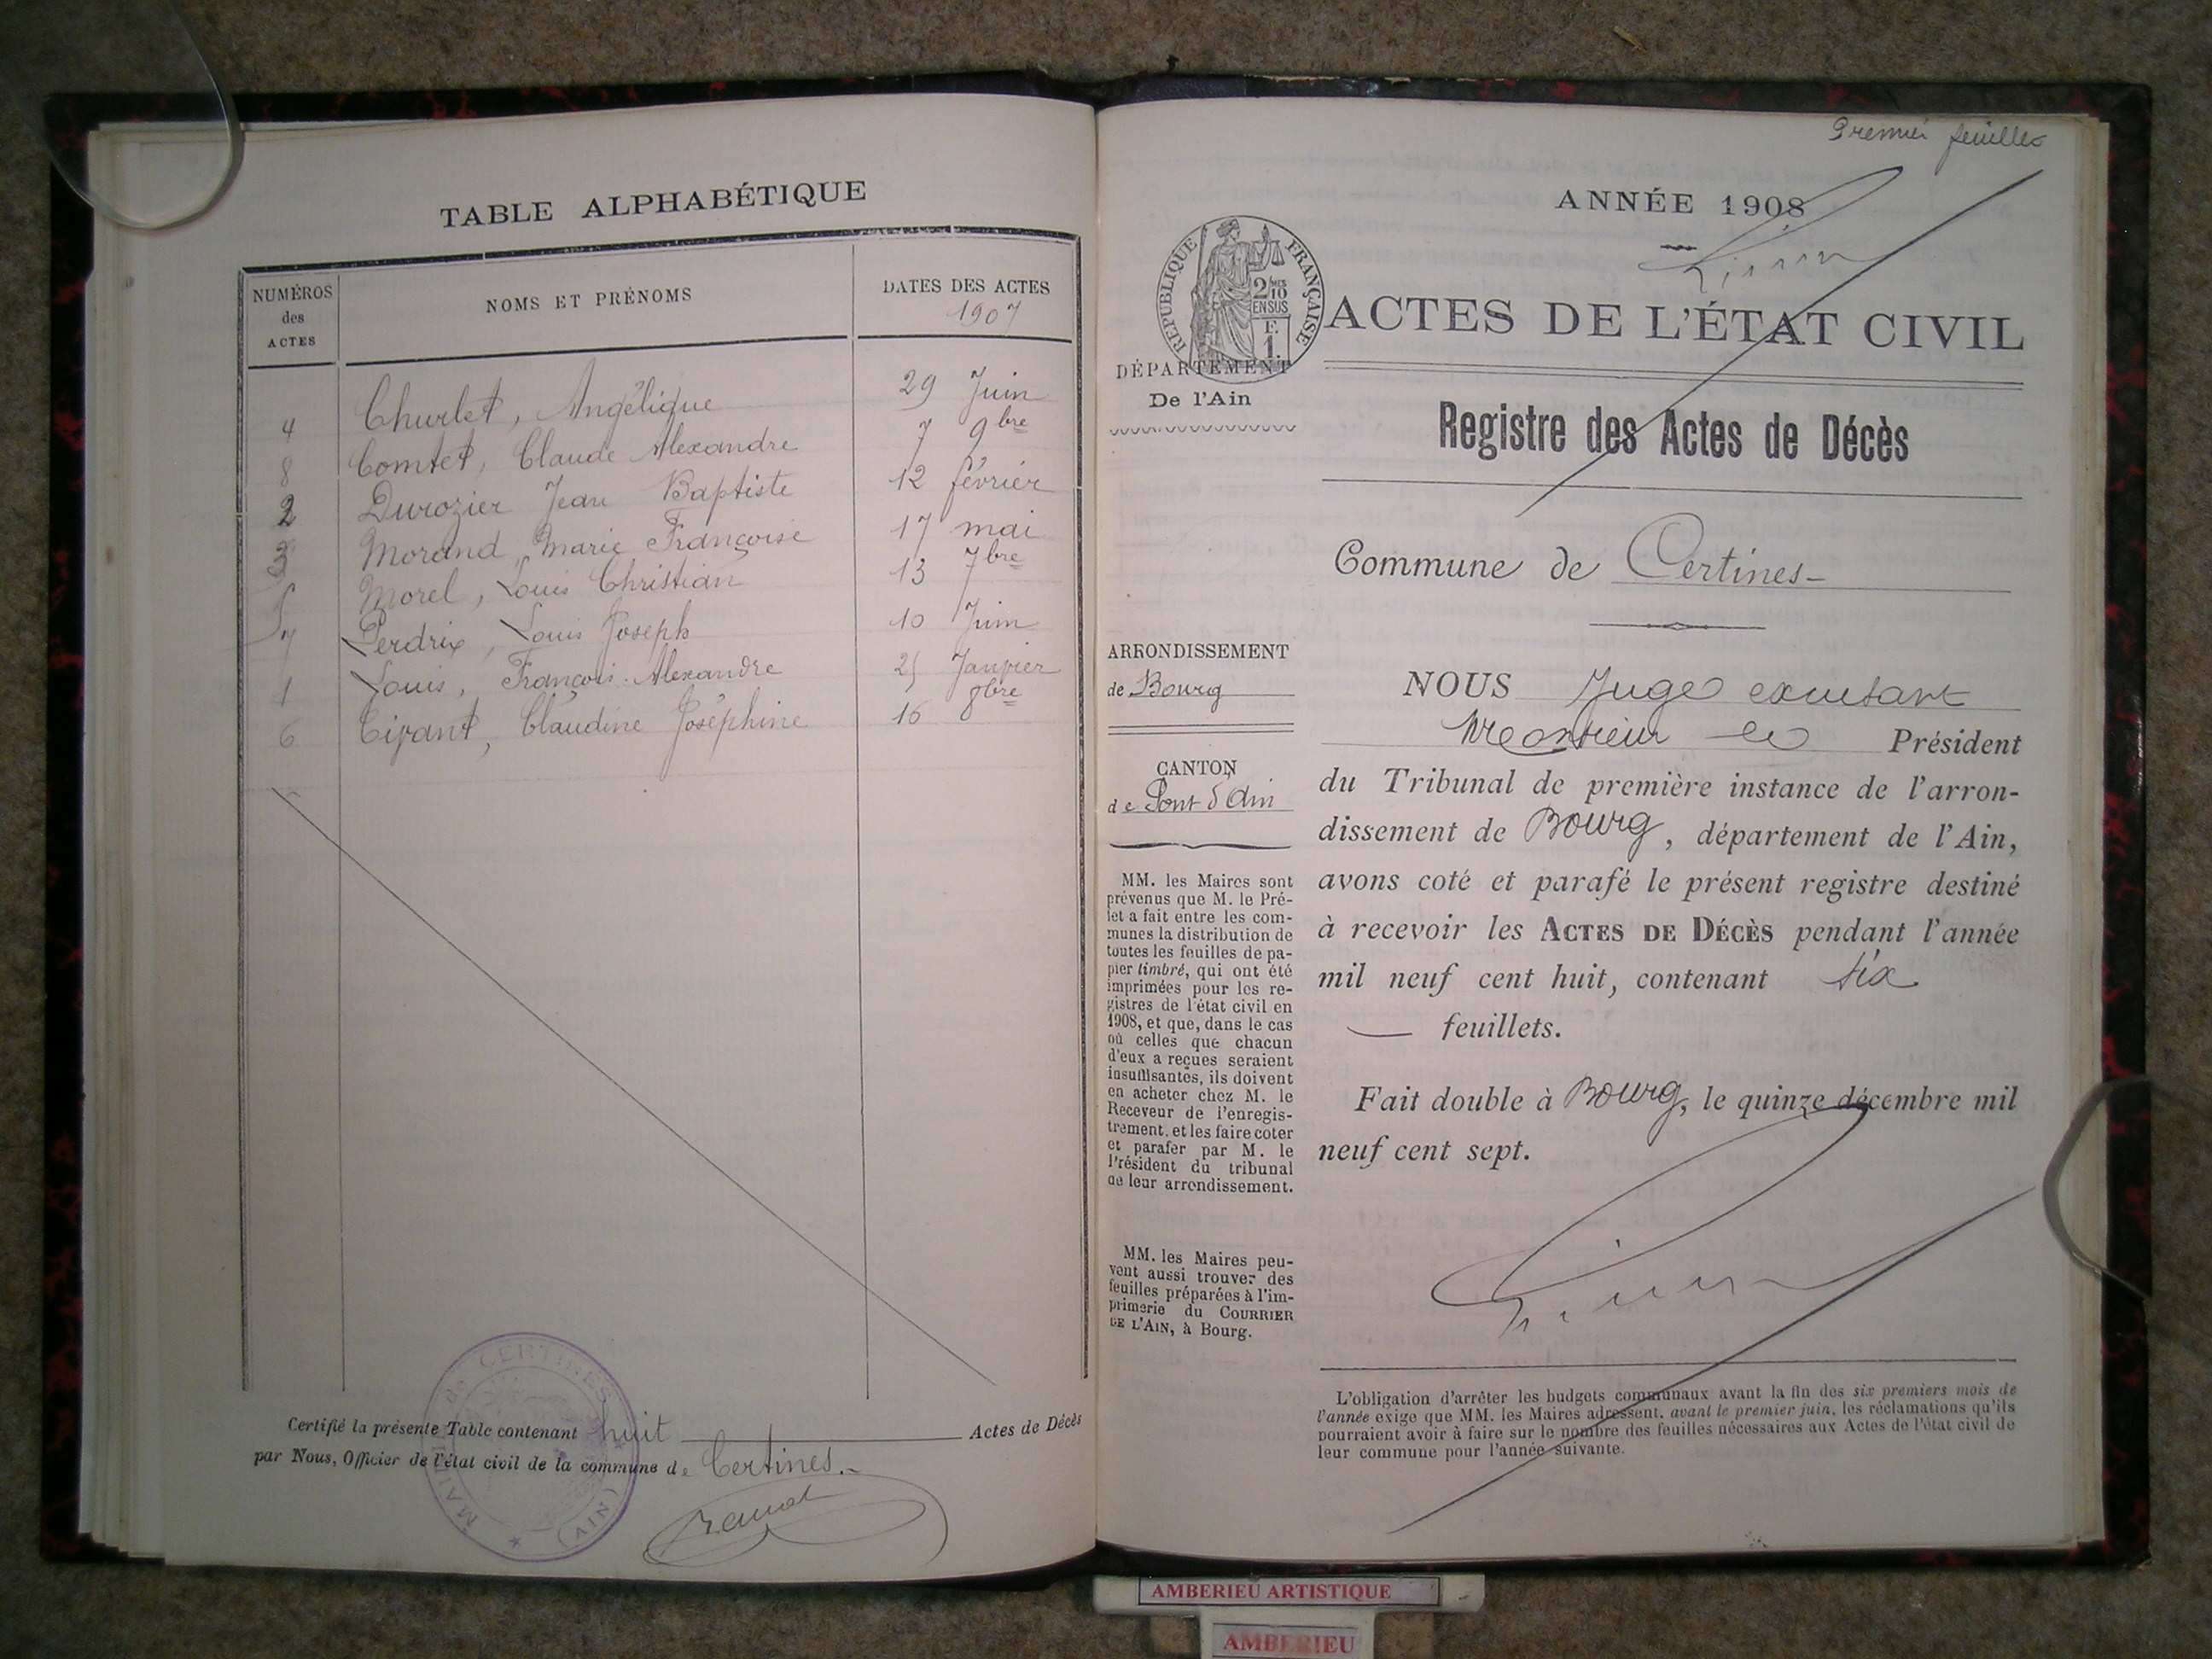 TABLE ALPHABÉTIQUE
NUMÉROS
des
ACTES
NOMS ET PRÉNOMS
DATES DES ACTES
1907
4 Churlet, Angélique 29 Juin
8 Comtet, Claude Alexandre 7 9bre
2 Durozier Jean Baptiste 12 février
3 Morand, Marie Françoise 17 mai
5 Morel, Louis Christian 13 7bre
7 Perdrix, Louis Joseph 10 Juin
1 Louis, François Alexandre 25 Janvier
6 Tirant, Claudine Joséphine 16 8bre
Certifié la présente Table contenant huit Actes de Décès
par Nous, Officier de l'état civil de la commune de Certines.
MAIRIE de CERTINES
(AIN)
Premier feuillet
ANNÉE 1908
RÉPUBLIQUE FRANÇAISE
2/10
EN SUS
F.
1.
ACTES DE L'ÉTAT CIVIL
DÉPARTEMENT
De l'Ain
Registre des Actes de Décès
Commune de Certines
ARRONDISSEMENT
de Bourg
CANTON
de Pont d'Ain
MM. les Maires sont
prévenus que M. le Pré-
fet a fait entre les com-
munes la distribution de
toutes les feuilles de pa-
pier timbré, qui ont été
imprimées pour les re-
gistres de l'état civil en
1908, et que, dans le cas
où celles que chacun
d'eux a reçues seraient
insuffisantes, ils doivent
en acheter chez M. le
Receveur de l'enregis-
trement, et les faire coter
et parafer par M. le
Président du tribunal
de leur arrondissement.
MM. les Maires peu-
vent aussi trouver des
feuilles préparées à l'im-
primerie du COURRIER
DE L'AIN, à Bourg.
NOUS Juge
Monsieur le Président
du Tribunal de première instance de l'arron-
dissement de Bourg, département de l'Ain,
avons coté et parafé le présent registre destiné
à recevoir les ACTES DE DÉCÈS pendant l'année
mil neuf cent huit, contenant six
feuillets.
Fait double à Bourg, le quinze décembre mil
neuf cent sept.
L'obligation d'arrêter les budgets communaux avant la fin des six premiers mois de
l'année exige que MM. les Maires adressent, avant le premier juin, les réclamations qu'ils
pourraient avoir à faire sur le nombre des feuilles nécessaires aux Actes de l'état civil de
leur commune pour l'année suivante.
AMBERIEU ARTISTIQUE
AMBERIEU